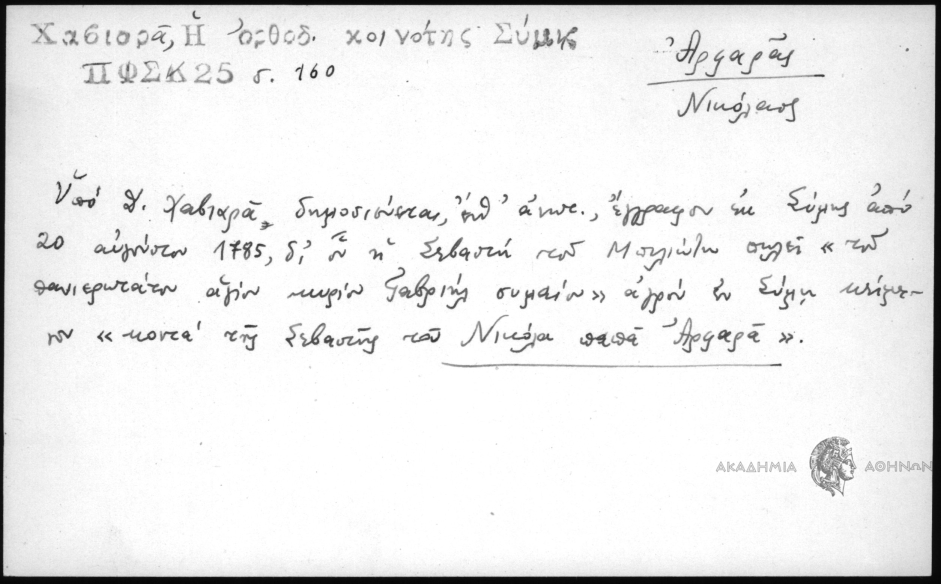 Χαβιαρᾶ, Ἡ ὀρθοδ. κοινότης Σύμης
ΠΦΣΚ 25 σ. 160
Ἀργαρᾶς
Νικόλαος
Ὑπό Δ. Χαβιαρᾶ, δημοσιεύεται, ἔνθ' ἀνωτ., ἔγγραφον ἐκ Σύμης ἀπό
20 αὐγούστου 1785, δι' οὗ ἡ Σεβαστή τοῦ πωλεῖ « τοῦ
πανιερωτάτου ἁγίου κυρίου Γαβριήλ συμαίου» ἀγρόν ἐν Σύμῃ κείμε-
νον « κοντά τῆς Σεβαστῆς τοῦ Νικόλα παπᾶ Ἀργαρᾶ ».
ΑΚΑΔΗΜΙΑ ΑΘΗΝΩΝ